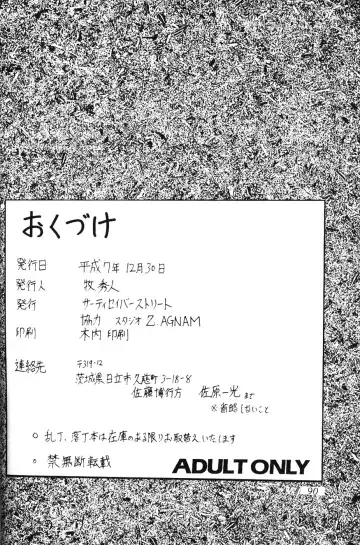 おくづけ
発行日 平成7年12月30日
発行人 牧 秀人
発行 サーティセイバーストリート
協力 スタジオ Z.AGNAM
印刷 木内印刷
連絡先 〒319-12
茨城県日立市久慈町3-18-8
佐藤博行方 佐原一光まで
※省略しないこと
○乱丁、落丁本は在庫のある限りお取替えいたします
○禁無断転載
ADULT ONLY
90